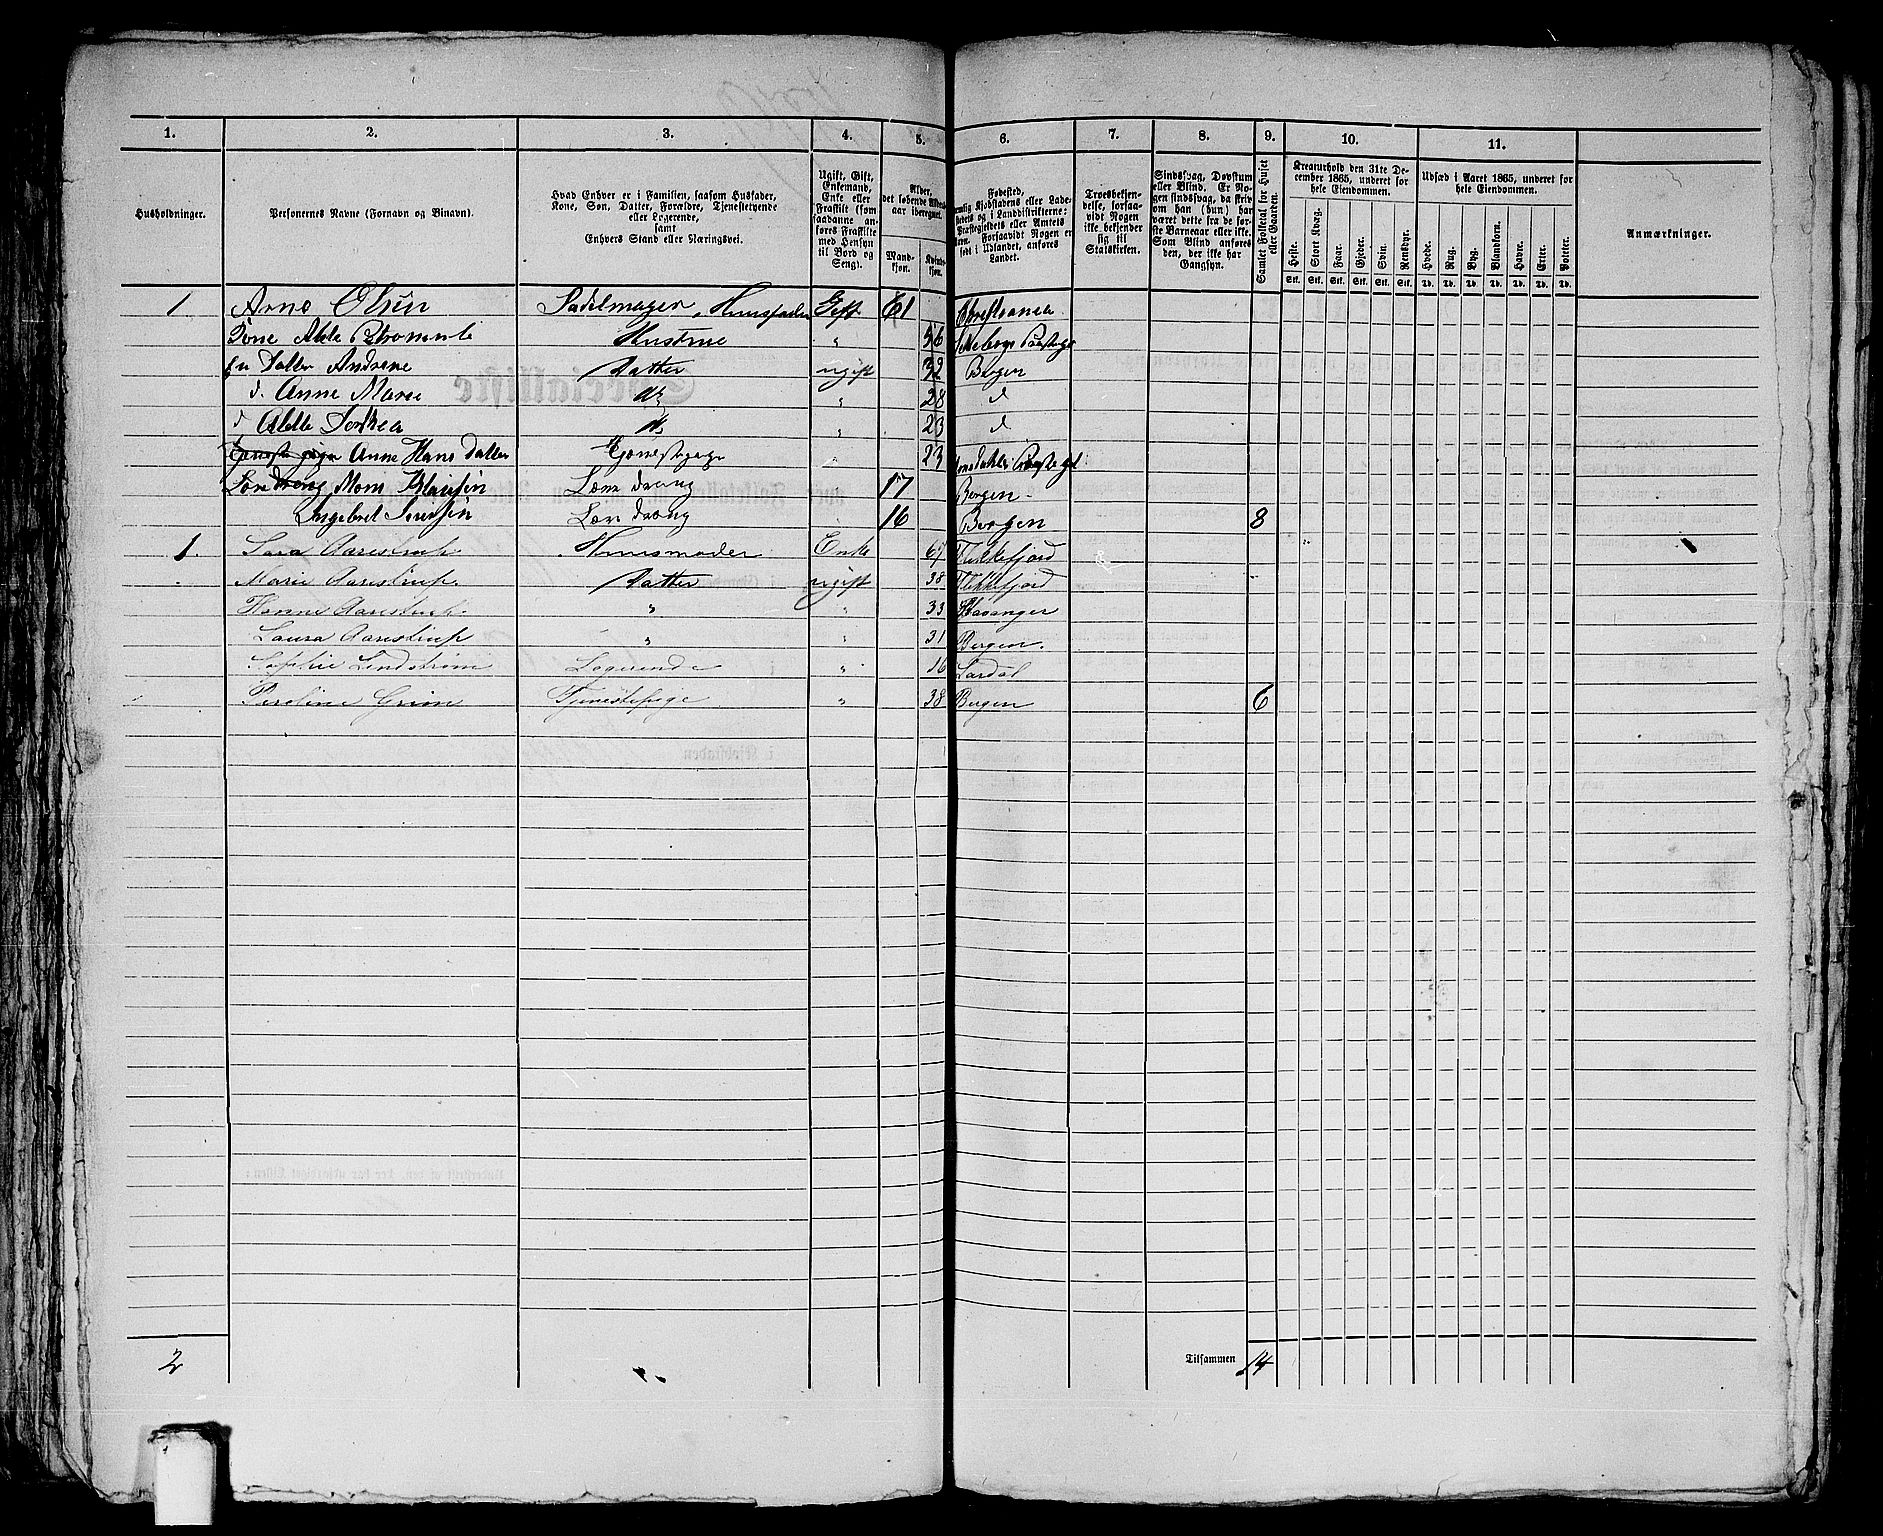 1. 2. 3. 4. 5. 6. 7. 8. 9. 10. 11.
Husholdninger.
Personernes Navne (Fornavn og Binavn).
Hvad Enhver er i Familien, saasom Husfader,
Kone, Søn, Datter, Forældre, Tjenestetyende
eller Logerende,
samt
Enhvers Stand eller Næringsvei.
Ugift, Gift,
Enkemand,
Enke eller
Fraskilt (som
saadanne an-
føres Fraskilte
med Hensyn
til Bord og
Seng).
Alder,
det løbende Alders-
aar iberegnet.
Mand-
kjøn.
Kvinde-
kjøn.
Fødested,
nemlig Kjøbstadens eller Lade-
stedets og i Landdistrikterne:
Præstegjeldets eller Amtets
Navn. Forsaavidt Nogen er
født i Udlandet, anføres
Landet.
Troesbekjen-
delse, forsaa-
vidt Nogen
ikke bekjender
sig til
Statskirken.
Sindssvag, Døvstum
eller Blind. Er No-
gen sindssvag, da skriv
om han (hun) har
været dette fra de før-
ste Barneaar eller ikke.
Som Blind anføres
den, der ikke har
Gangsyn.
Samlet Folketal for Huset
eller Gaarden.
Kreaturhold den 31te De-
cember 1865, underet for
hele Eiendommen.
Heste. Stort Kvæg. Faar. Gjeder. Svin. Rensdyr.
Stk. Stk. Stk. Stk. Stk. Stk.
Udsæd i Aaret 1865, underet for
hele Eiendommen.
Hvede. Rug. Byg. Blandkorn. Havre. Erter. Poteter.
Td. Td. Td. Td. Td. Td. Td.
Anmærkninger.
1 Arne Olsen Sadelmager, Huusfader Gift 61 Christiania
Hustrue " 56
Datter Andrine Datter ugift 32 Bergen
d. Anne Marie do " 28 d
d Alette do " 23 d
Anne Hans datter Tjenestepige " 23
Klausen Lære dreng 17 Bergen
Ingebret Lære dreng 16 Bergen 8
1. Sara Aarestrup Huusmoder Enke 67 Flekkefjord
Marie Aarestrup. Datter ugift 38 Flekkefjord
Hanne Aarestrup. " " 33 Stavanger
Laura Aarestrup " " 31 Bergen.
Sophie Lindstrøm Logerende " 16 Lardal
Grim Tjenestepige " 38 Bergen 6
2 Tilsammen 14